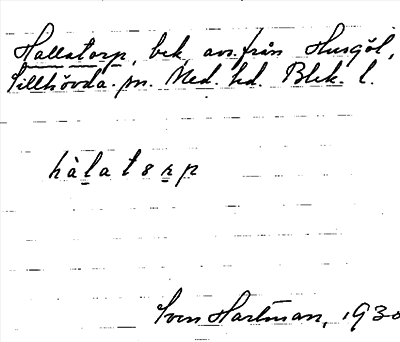 Hallatorp, bek. avs. från Husgöl,
Tillhövda sn. Med. hd. Blek. l.
hàlatsrp
Sven Hartman, 1930